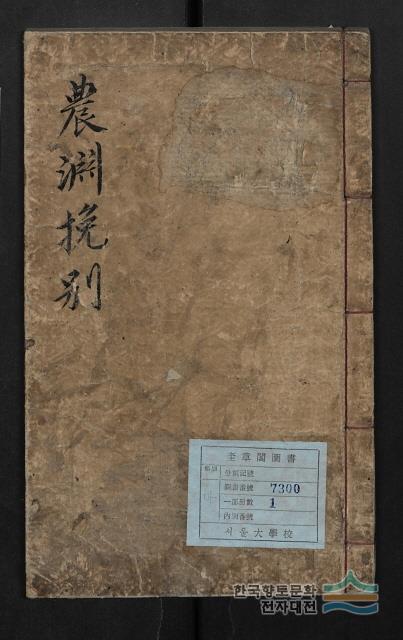 農淵挽別
奎章閣圖書
圖書番號 7300
一部冊數 1
內別番號
서울大學校
한국향토문화
전자대전